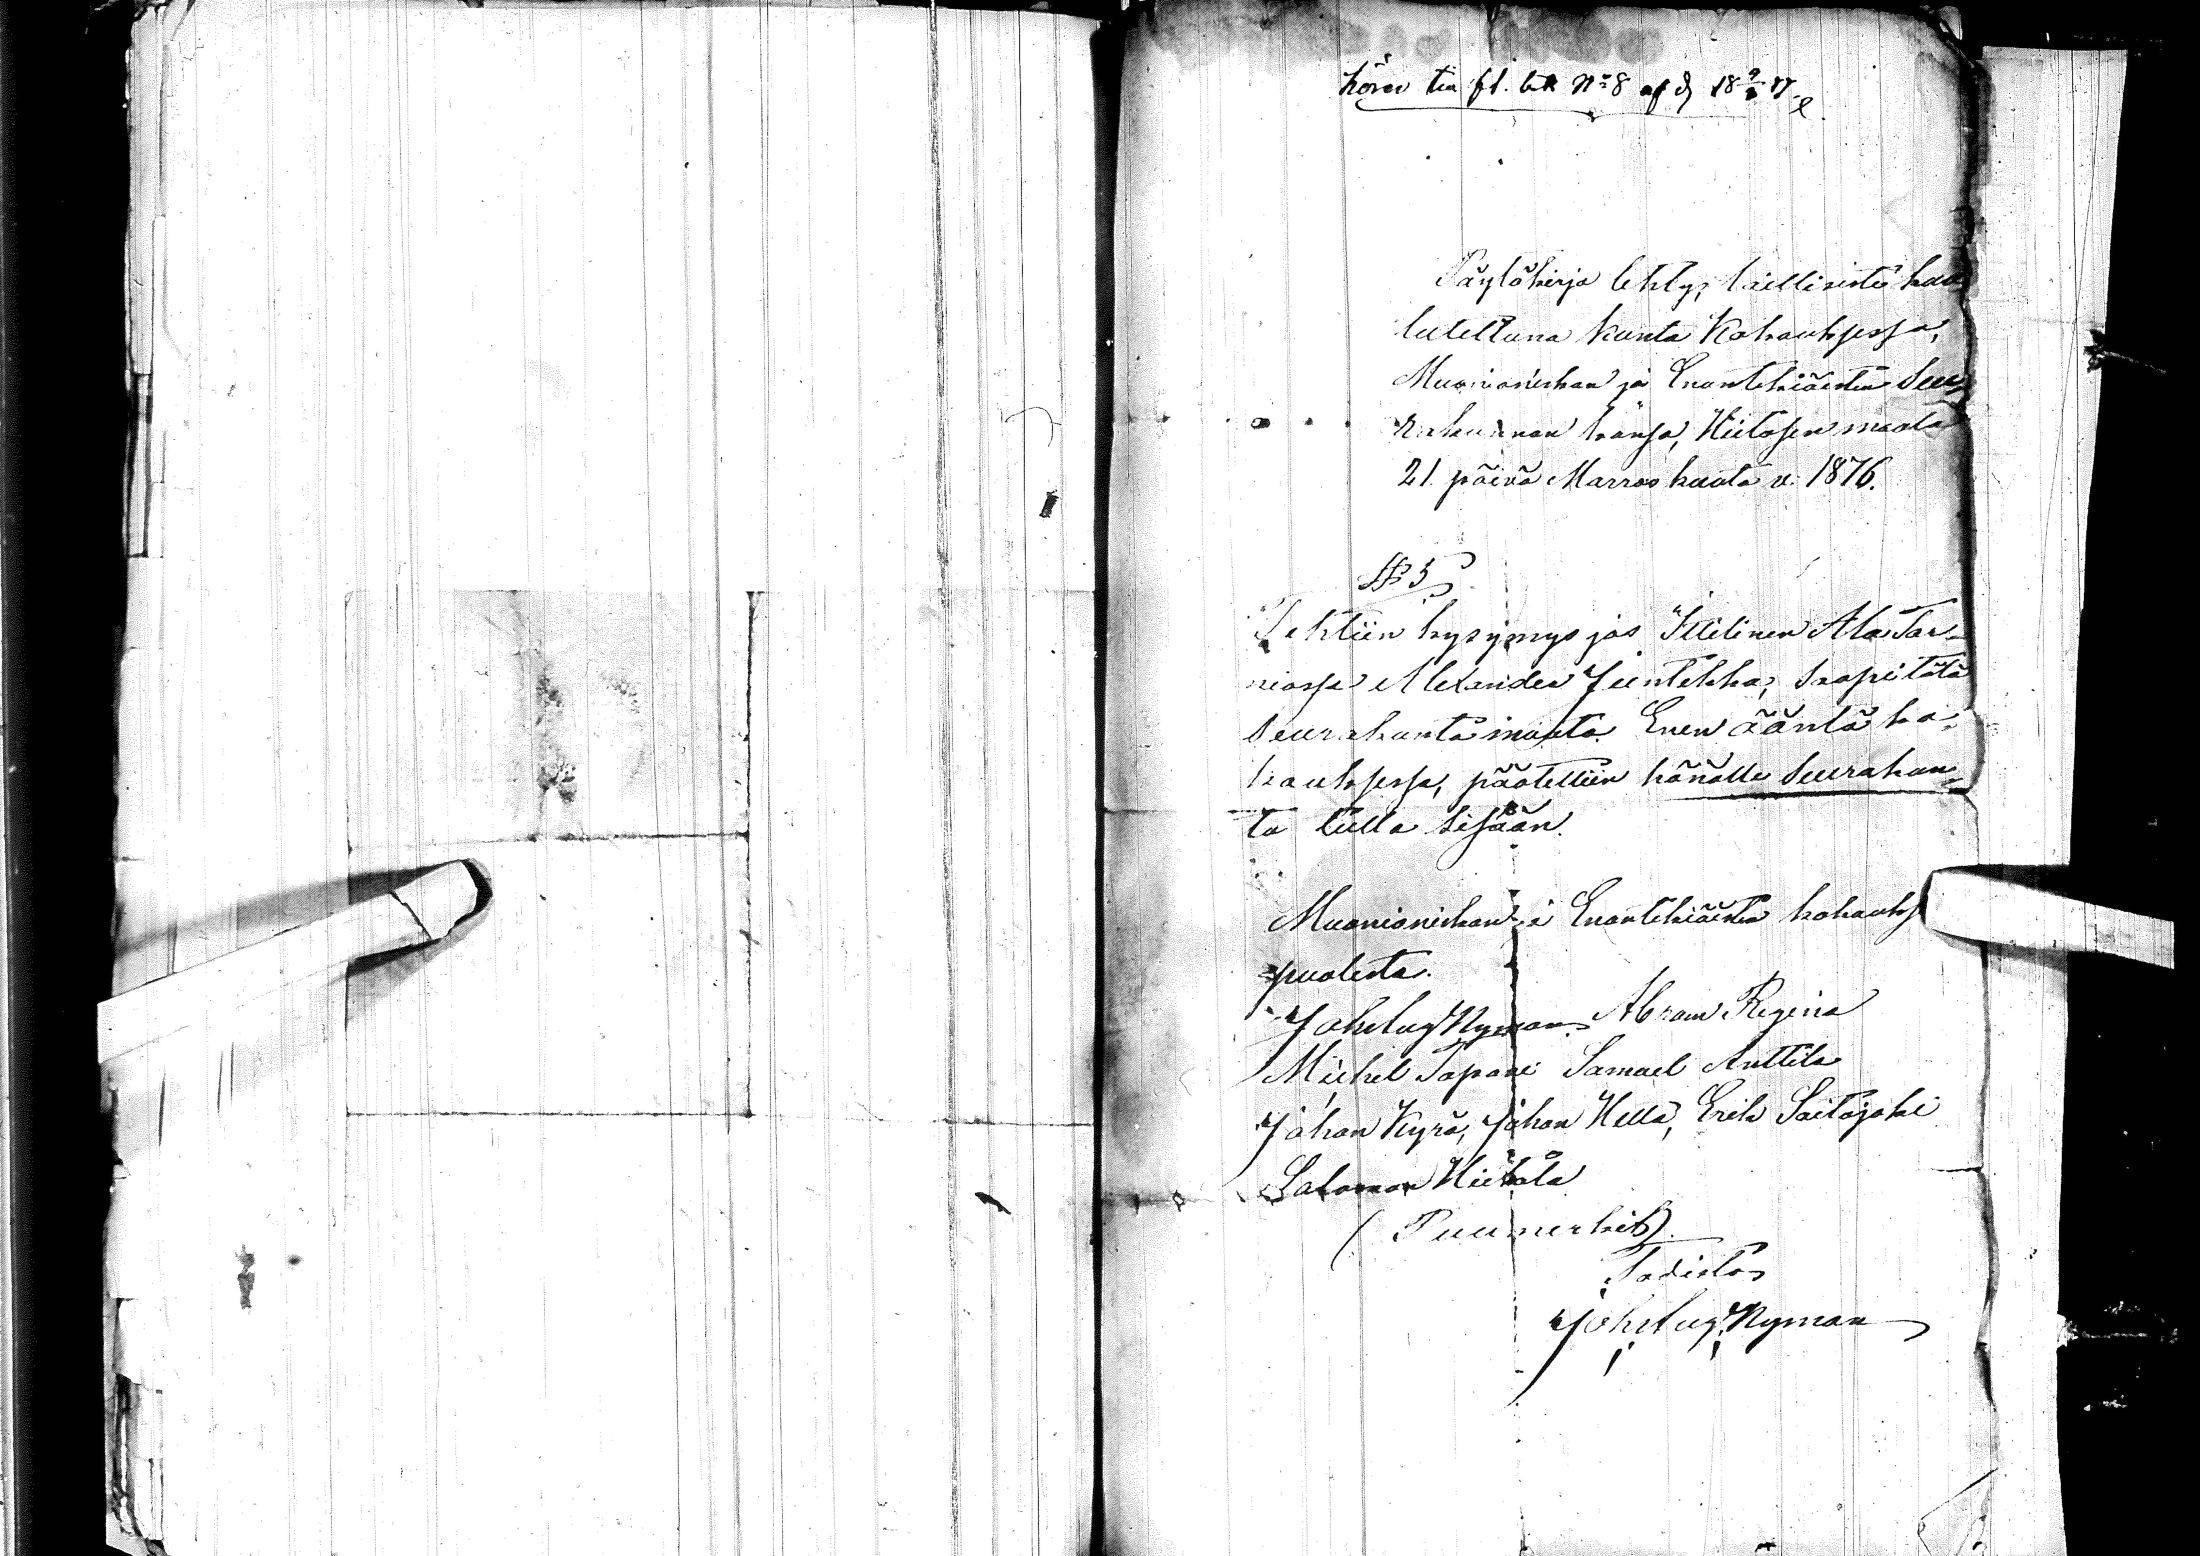 hörer till fl. bet N:o 8 af d 18 9/2 77
Päytökirja tehty, laillisesti kuu
lutettuna kunta Kokouksessa,
Muonioniskan ja Enontekiäisten Seu
rakunnan kansa, Hietasen maala
21 päivä Marras kuuta v. 1876.
§ 5
Tehtiin kysymys jos Itellinen Ala Tor-
niosta Alexander Juntikka, saapi tätä
Seurakunta muuta Enen ääntä ko-
kouksessa, päätettiin hänälle Seurakun-
ta tulla sisään.
Muonioniskan ja Enontekiäisten kokouks
puolesta.
Joh Lug Nyman Abram Regina
Michel Tapani Samuel Anttila
Johan Kyrö, Johan Hella, Erik Saitajoki
Salomon Hietala
(Puumerkit)
Todistaa
Joh Lug Nyman